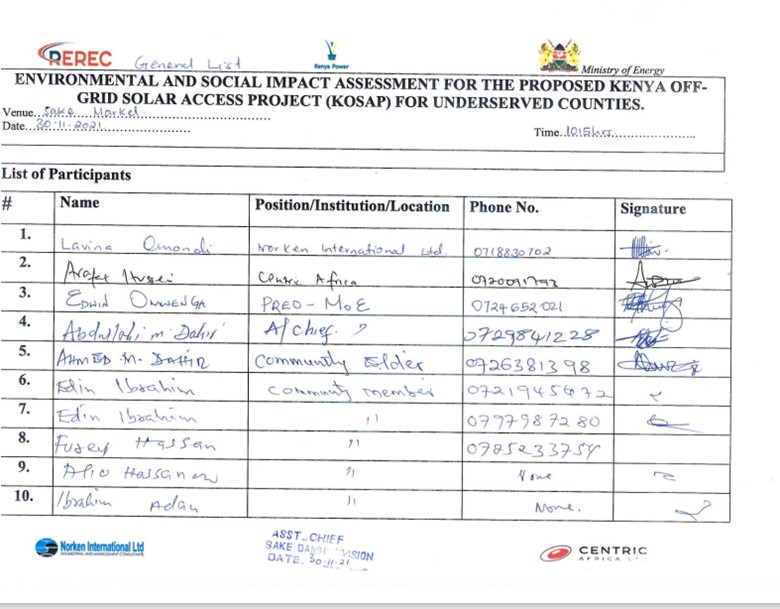 REREC General List Kenya Power Ministry of Energy
ENVIRONMENTAL AND SOCIAL IMPACT ASSESSMENT FOR THE PROPOSED KENYA OFF-
GRID SOLAR ACCESS PROJECT (KOSAP) FOR UNDERSERVED COUNTIES.
Venue...Sake Market
Date...30.11.2021 Time. 1015hrs
List of Participants
# Name Position/Institution/Location Phone No. Signature
1. Lavina Omondi Norken International Ltd. 0718830702
2. Arafat Centric Africa 0720091793
3. EDWIN OMWENGA PREO - MoE 0724652021
4. Abdullahi m. Dahir A/Chief. 0729841228
5. AHMED M. DAHIR Community Elder 0726381398
6. Edin Ibrahim Community member
7. Edin Ibrahim " 0797987280
8. Hassan "
9. Alio "  None
10. Ibrahim Adan " None.
Norken International Ltd
ENGINEERING AND MANAGEMENT CONSULTANTS
ASST. CHIEF
SAKE
DATE. 30.11.21
CENTRIC
AFRICA LTD